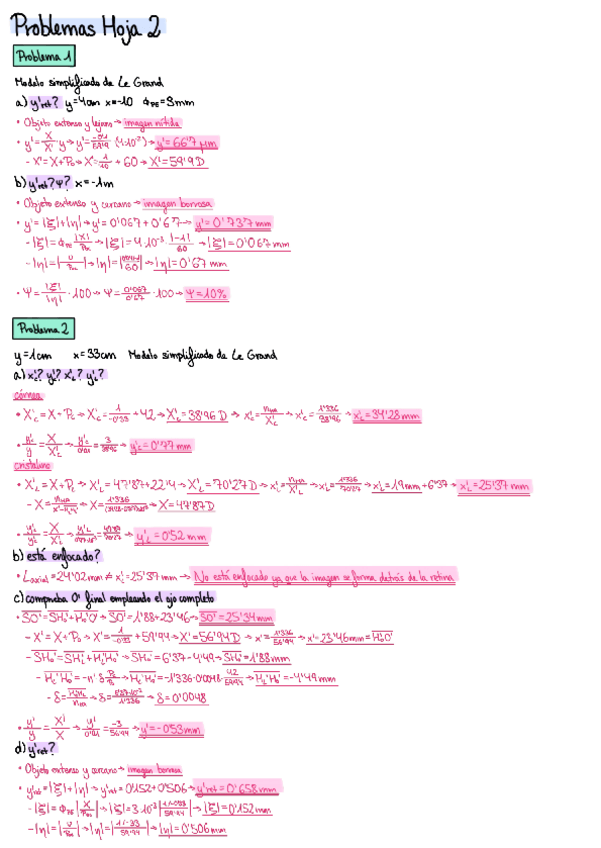 Problemas Hoja 2
Problema 1
Modelo simplificado de Le Grand
a) y'ret? y=4cm x=-10 ϕPE=3mm
• Objeto extenso y lejano → imagen nítida
• y'= X/X' y → y'= (4·10⁻²) → y'=66'7 μm
- X'=X+Po → X'= 1/10 + 60 → X'=59'9 D
b) y'ret? Ψ? x=-1m
• Objeto extenso y cercano → imagen borrosa
• y'=|ξ|+|η| → y'=0'067+0'67 → y'=0'737 mm
- |ξ|=ϕPE → |ξ|=4·10⁻³ · |-1|/60 → |ξ|=0'067 mm
- |η|= → |η|= → |η|=0'67 mm
• Ψ= |ξ|/|η| ·100 → Ψ= 0'067/0'67 ·100 → Ψ=10%
Problema 2
y=1cm x=33cm Modelo simplificado de Le Grand
a) x'c? y'c? x'L? y'L?
córnea
• X'c=X+Pc → X'c= 1/-0'33 +42 → X'c=38'96 D → x'c= → x'c= 1'336/38'96 → x'c=34'28mm
• y'c/y = X/X'c → = 3/38'96 → y'c=0'77 mm
cristalino
• X'L=X+PL → X'L=47'87+22'4 → X'L=70'27 D → x'L= → x'L= 1'336/70'27 → x'L=19mm+6'37 → x'L=25'37 mm
- X= → X= → X=47'87 D
• = → = 47'87/70'27 → y'L=0'52 mm
b) está enfocado?
• Laxial=24'02mm ≠ x'L=25'37mm → No está enfocado ya que la imagen se forma detrás de la retina
c) comprueba O' final empleando el ojo completo
• SO'=SHo'+Ho'O' → SO'=1'88+23'46 → SO'=25'34mm
- X'=X+Po → X'= 1/-0'33 +59'94 → X'=56'94 D → x'= 1'336/56'94 → x'=23'46mm=Ho'O'
- SHo'= → SHo'=6'37-4'49 → SHo'=1'88mm
- =-n' δ → =-1'336·0'0048· 42/59'94 → =-4'49mm
- δ= → δ= → δ=0'0048
• y'/y = X/X' → y'/0'01 = -3/56'94 → y'=-0'53 mm
d) y'ret?
• Objeto extenso y cercano → imagen borrosa
• y'ret=|ξ|+|η| → y'ret=0'152+0'506 → y'ret=0'658 mm
- |ξ|=ϕPE → |ξ|=3·10⁻³ → |ξ|=0'152 mm
- |η|= → |η|= → |η|=0'506 mm